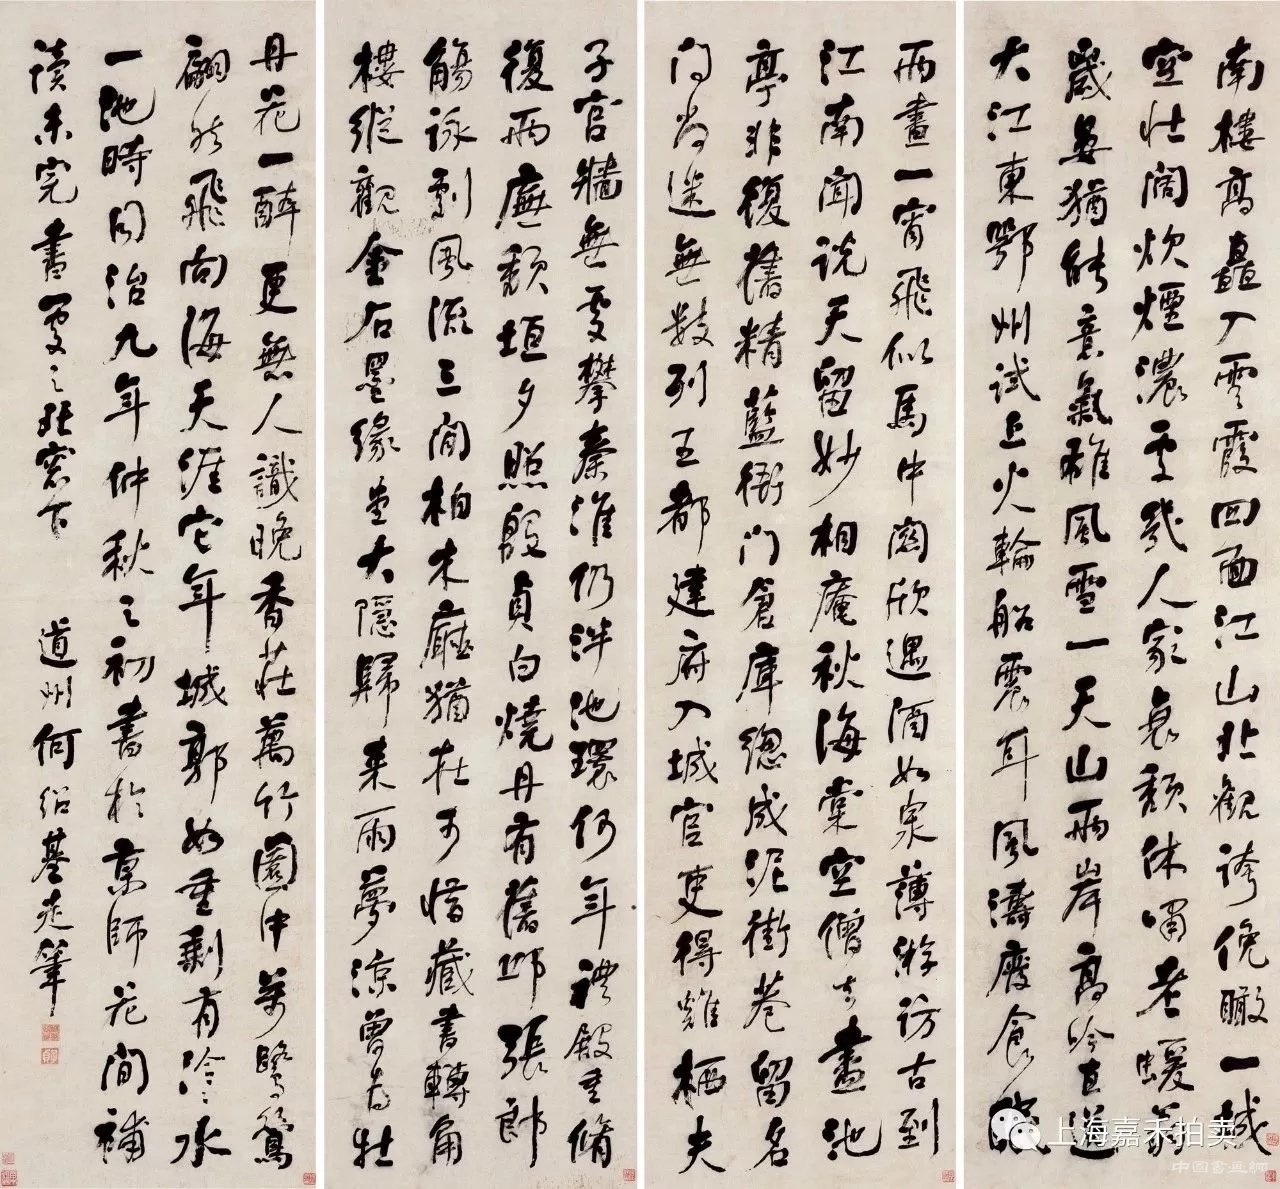 南樓高矗入雲霞回面江山北觀誇俛瞰一城
空壯闊炊煙濃處幾人家衰顏休嘯老蝯翁
歲晏猶能意氣雄風雪一天山兩岸高吟直送
大江東鄂州試上火輪船震耳風濤廢食眠
兩晝一宵飛似馬中途欣遇酒如泉薄游訪古到
江南聞說天留妙相庵秋海棠空僧去盡池
亭非復舊精藍衙門倉庫總成泥街巷留名
問尚迷無數列王都建府入城官吏得難栖夫
子宮牆無處攀秦淮仍泮池環何年禮殿重脩
復兩廡頹垣夕照殷貞白燒丹有舊邱張郎
觴詠劇風流三間柏木廳猶在可惜藏書轉角
樓縱觀金石墨緣堂大隱歸來雨夢涼曾為牡
丹花一醉更無人識晚香莊萬竹園中萬鷺鶿
翩然飛向海天涯它年城郭如重到賸有泠泠水
一池時同治九年仲秋之初書於京師花間補
讀未完書屋之北窗下 道州何紹基走筆
上海嘉禾拍卖
中国书画网